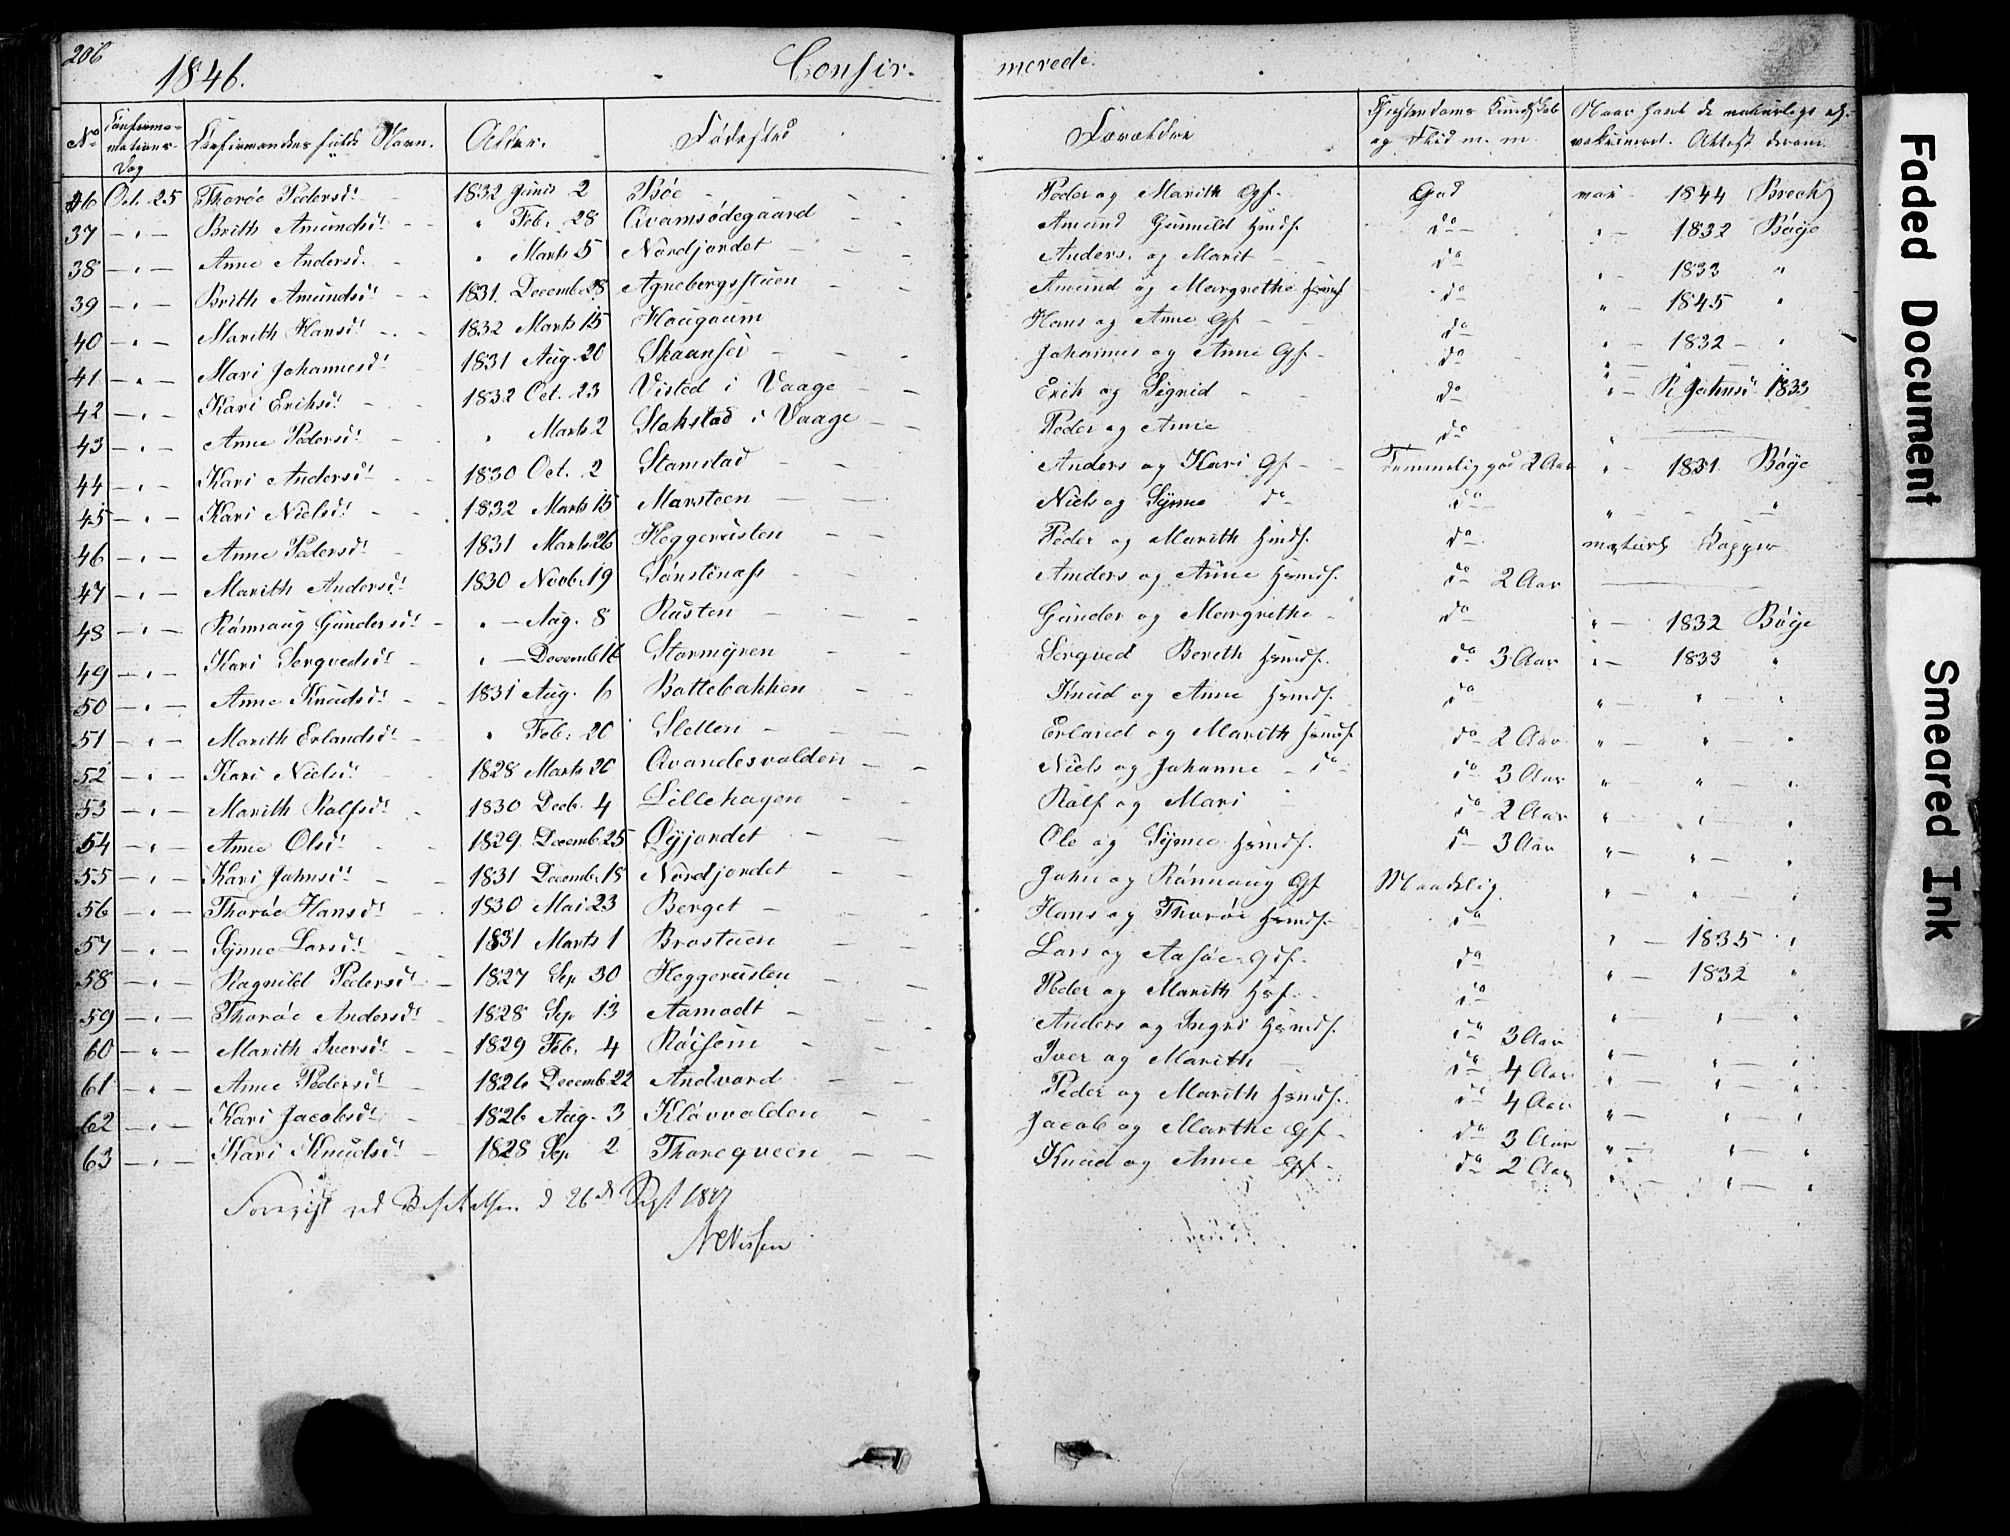 206
1846. Confir- merede.
No Confirmations-Dag Confirmandens fulde Navn. Alder. Fødested Forældre Christendoms Kundskab og Flid m. m. Naar havt de naturlige el. vakcineret. Attest derom.
36 Oct. 25 Thorøe Pedersd. 1832 Junis 2 Bøe Peder og Marith Gf. God vac. 1844 Brech
37 — " — Brith Amundsd. " Feb. 28 Qvamsødegaard Amund Gunnild Hmdf. do " 1832 Bøge
38 — " — Anne Andersd. " Marts 5 Nordjordet Anders og Marit do " 1833 "
39 — " — Brith Amundsd. 1831 Decemb. 28 Agnebergsstuen Amund og Margrethe Hsmdf do " 1845 "
40 — " — Marith Hansd. 1832 Marts 15 Hougaum Hans og Anne Gf. do " 1832 "
41 — " — Mari Johannesd. 1831 Aug. 20 Skaansei Johannes og Anne Gf. do " "
42 — " — Kari Eriksd. 1832 Oct. 23 Visted i Vaage Erik og Sigrid do " R. Jahnsd. 1833
43 — " — Anne Pedersd. " Marts 2 Slakstad i Vaage Peder og Anne do "
44 — " — Kari Andersd. 1830 Oct. 2 Stamstad Anders og Kari Gf. Temmelig god 2 Aar " 1831 Bøge
45 — " — Kari Nielsd. 1832 Marts 15 Marsteen Niels og Synne do do " — "
46 — " — Anne Pedersd. 1831 Marts 26 Heggerusten Peder og Marith Hmdf. do naturl. Kopper
47 — " — Marith Andersd. 1830 Novb. 19 Sønstenæss Anders og Anne Hsmdf. do 2 Aar
48 — " — Rønnaug Gundersd. " — Aug. 8 Rusten Gunder og Margrethe do " 1832 Bøge
49 — " — Kari Sergvedsd. " — Decemb 16 Stormyren Sergved Bereth Hsmdf. do 3 Aar " 1833 "
50 — " — Anne Knudsd. 1831 Aug. 6 Battebakken Knud og Anne Hsmdf. do " " "
51 — " — Marith Erlandsd. " Feb. 20 Sletten Erland og Marith Hsmdf do 2 Aar " " "
52 — " — Kari Nielsd. 1828 Marts 20 Qvandesvolden Niels og Johanne do do 3 Aar " " "
53 — " — Marith Ralfsd. 1830 Decb. 4 Lillehagen Ralf og Mari " do 2 Aar " " "
54 — " — Anne Olsd. 1829 Decemb. 25 Øyjordet Ole og Synne Hsmdf. do 3 Aar " " "
55 — " — Kari Jahnsd. 1831 Decemb. 18 Nordjordet Jahn og Rønnaug Gf Maadelig " " "
56 — " — Thorøe Hansd. 1830 Mai 23 Berget Hans og Thorøe Hsmdf. do
57 — " — Synne Larsd. 1831 Marts 1 Brostuen Lars og Aasøe Gdf. do " 1835 "
58 — " — Ragnild Pedersd. 1827 Sep 30 Heggerusten Peder og Marith Hsf. do " 1832 "
59 — " — Thorøe Andersd. 1828 Sep 13 Aamodt Anders og Ingri Hsmdf. do 3 Aar " " "
60 — " — Marith Iversd. 1829 Feb. 4 Røisem Iver og Marith do 4 Aar " " "
61 — " — Anne Pedersd. 1826 Decemb. 22 Andvord Peder og Marith Hsmdf. do 4 Aar " " "
62 — " — Kari Jacobsd. 1826 Aug. 3 Kløvvolden Jacob og Marthe Gf. do 3 Aar " " "
63 — " — Kari Knudsd. 1828 Sep 2 Thoreqveen Knud og Anne Gf. do 2 Aar " " "
Foreviist ved d. 26de Sept 1847
Nissen
Faded Document
Smeared Ink